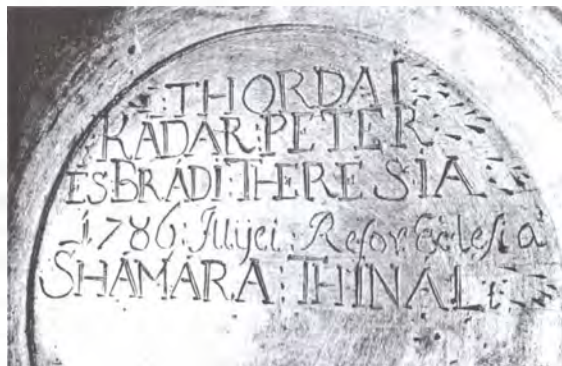 THORDAI
KÁDÁR: PETER
ÉS BRÁDI: THERESIA
1786: Illyei: Refor: Exlesia
SHÁMÁRA: THINÁL: